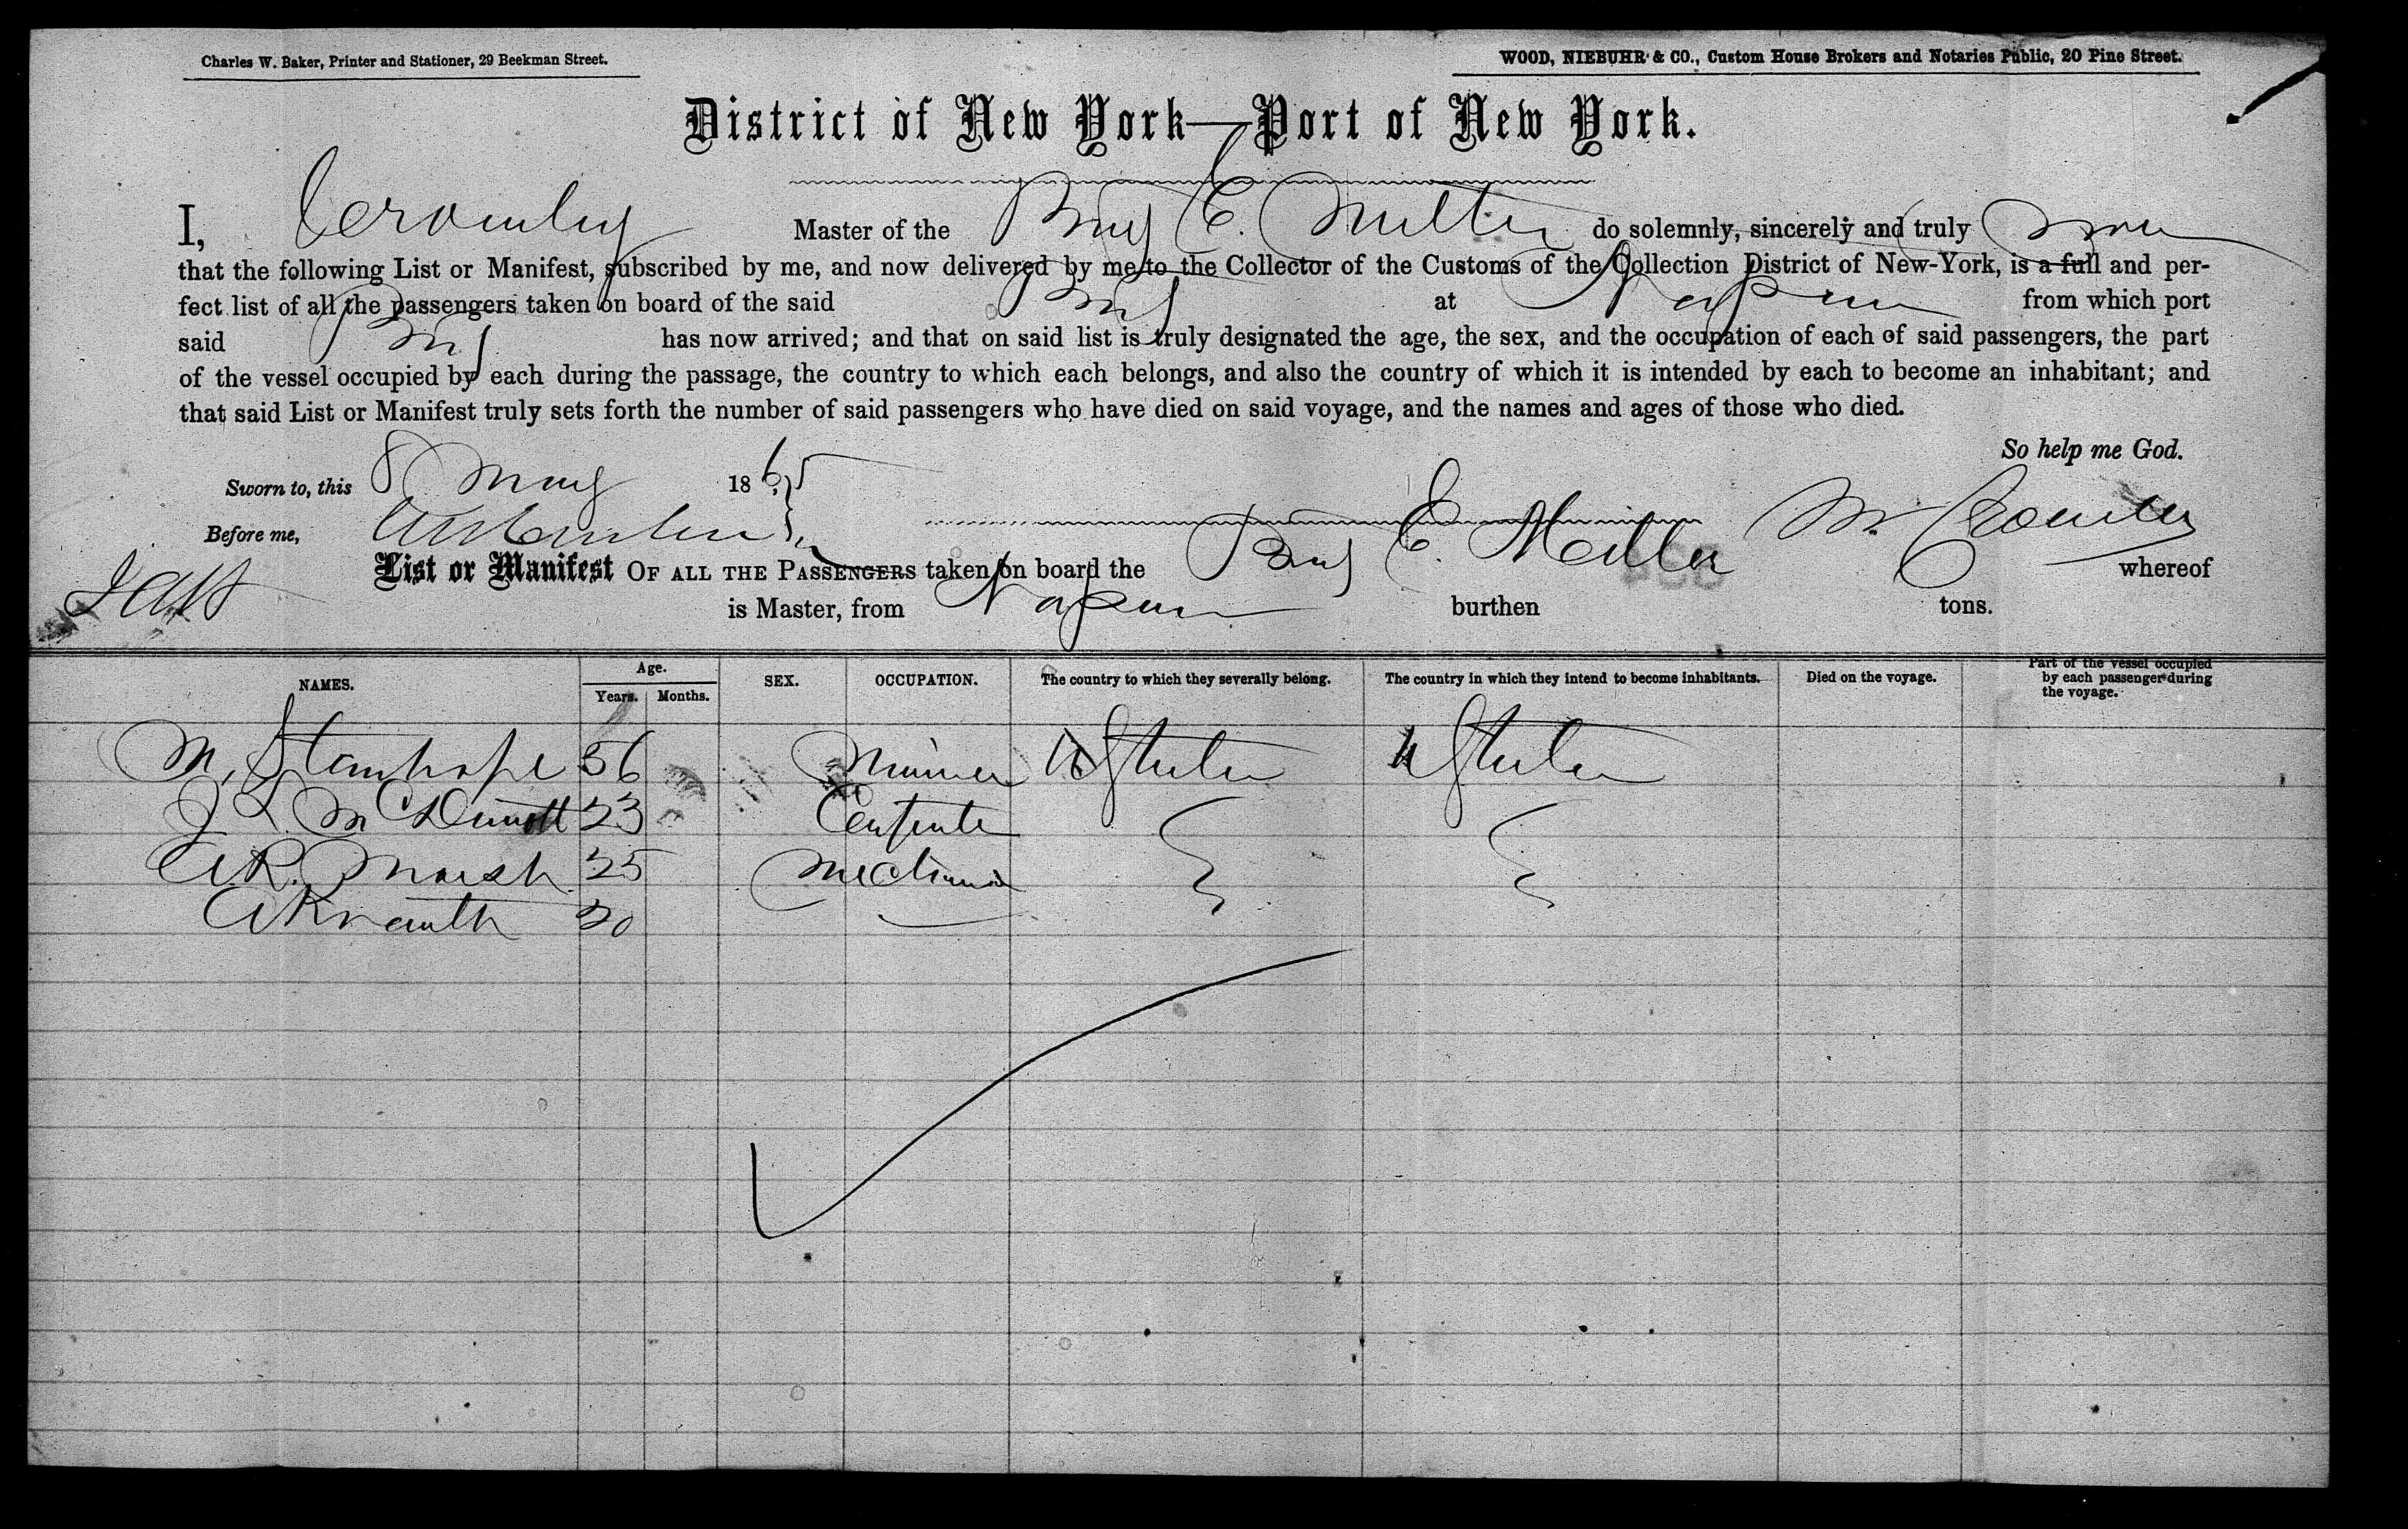 Charles W. Baker, Printer and Stationer, 29 Beekman Street.
WOOD, NIEBUHR & CO., Custom House Brokers and Notaries Public, 20 Pine Street.
District of New York—Port of New York.
I, Master of the Brig E. Miller do solemnly, sincerely and truly swear
that the following List or Manifest, subscribed by me, and now delivered by me to the Collector of the Customs of the Collection District of New-York, is a full and per-
fect list of all the passengers taken on board of the said Brig at from which port
said Brig has now arrived; and that on said list is truly designated the age, the sex, and the occupation of each of said passengers, the part
of the vessel occupied by each during the passage, the country to which each belongs, and also the country of which it is intended by each to become an inhabitant; and
that said List or Manifest truly sets forth the number of said passengers who have died on said voyage, and the names and ages of those who died.
So help me God.
Sworn to, this 8 May 1865
Before me,
List or Manifest OF ALL THE PASSENGERS taken on board the Brig E. Miller whereof
is Master, from burthen tons.
NAMES. Age. Years. Months. SEX. OCCUPATION. The country to which they severally belong. The country in which they intend to become inhabitants. Died on the voyage. Part of the vessel occupied by each passenger during the voyage.
M. Stanhope 56 U States U States
J. L. McDermott 23 Carpenter
A. R. Marsh 25 Mechanic
A Knauth 20